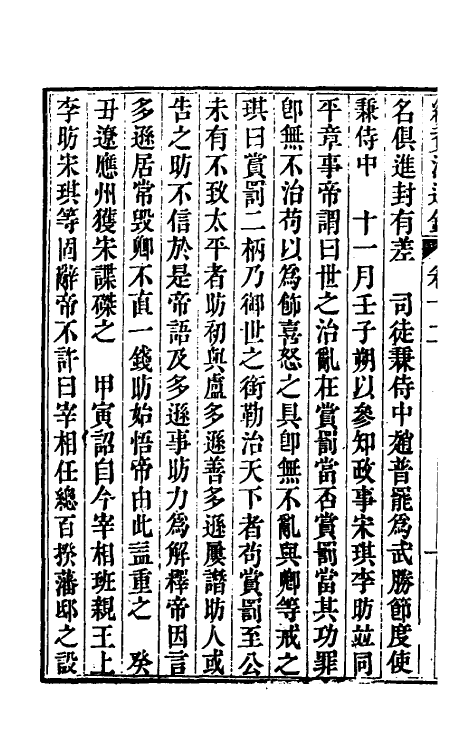 名俱進封有差　司徒兼侍中趙普罷爲武勝節度使
兼侍中　十一月壬子朔以參知政事宋琪李昉竝同
平章事帝謂曰世之治亂在賞罰當否賞罰當其功罪
卽無不治苟以爲飾喜怒之具卽無不亂與卿等戒之
琪曰賞罰二柄乃御世之銜勒治天下者苟賞罰至公
未有不致太平者昉初與盧多遜善多遜屢譖昉人或
告之昉不信於是帝語及多遜事昉力爲解釋帝因言
多遜居常毁卿不直一錢昉始悟帝由此益重之　癸
丑遼應州獲宋諜磔之　甲寅詔自今宰相班親王上
李昉宋琪等固辭帝不許曰宰相任總百揆藩邸之設